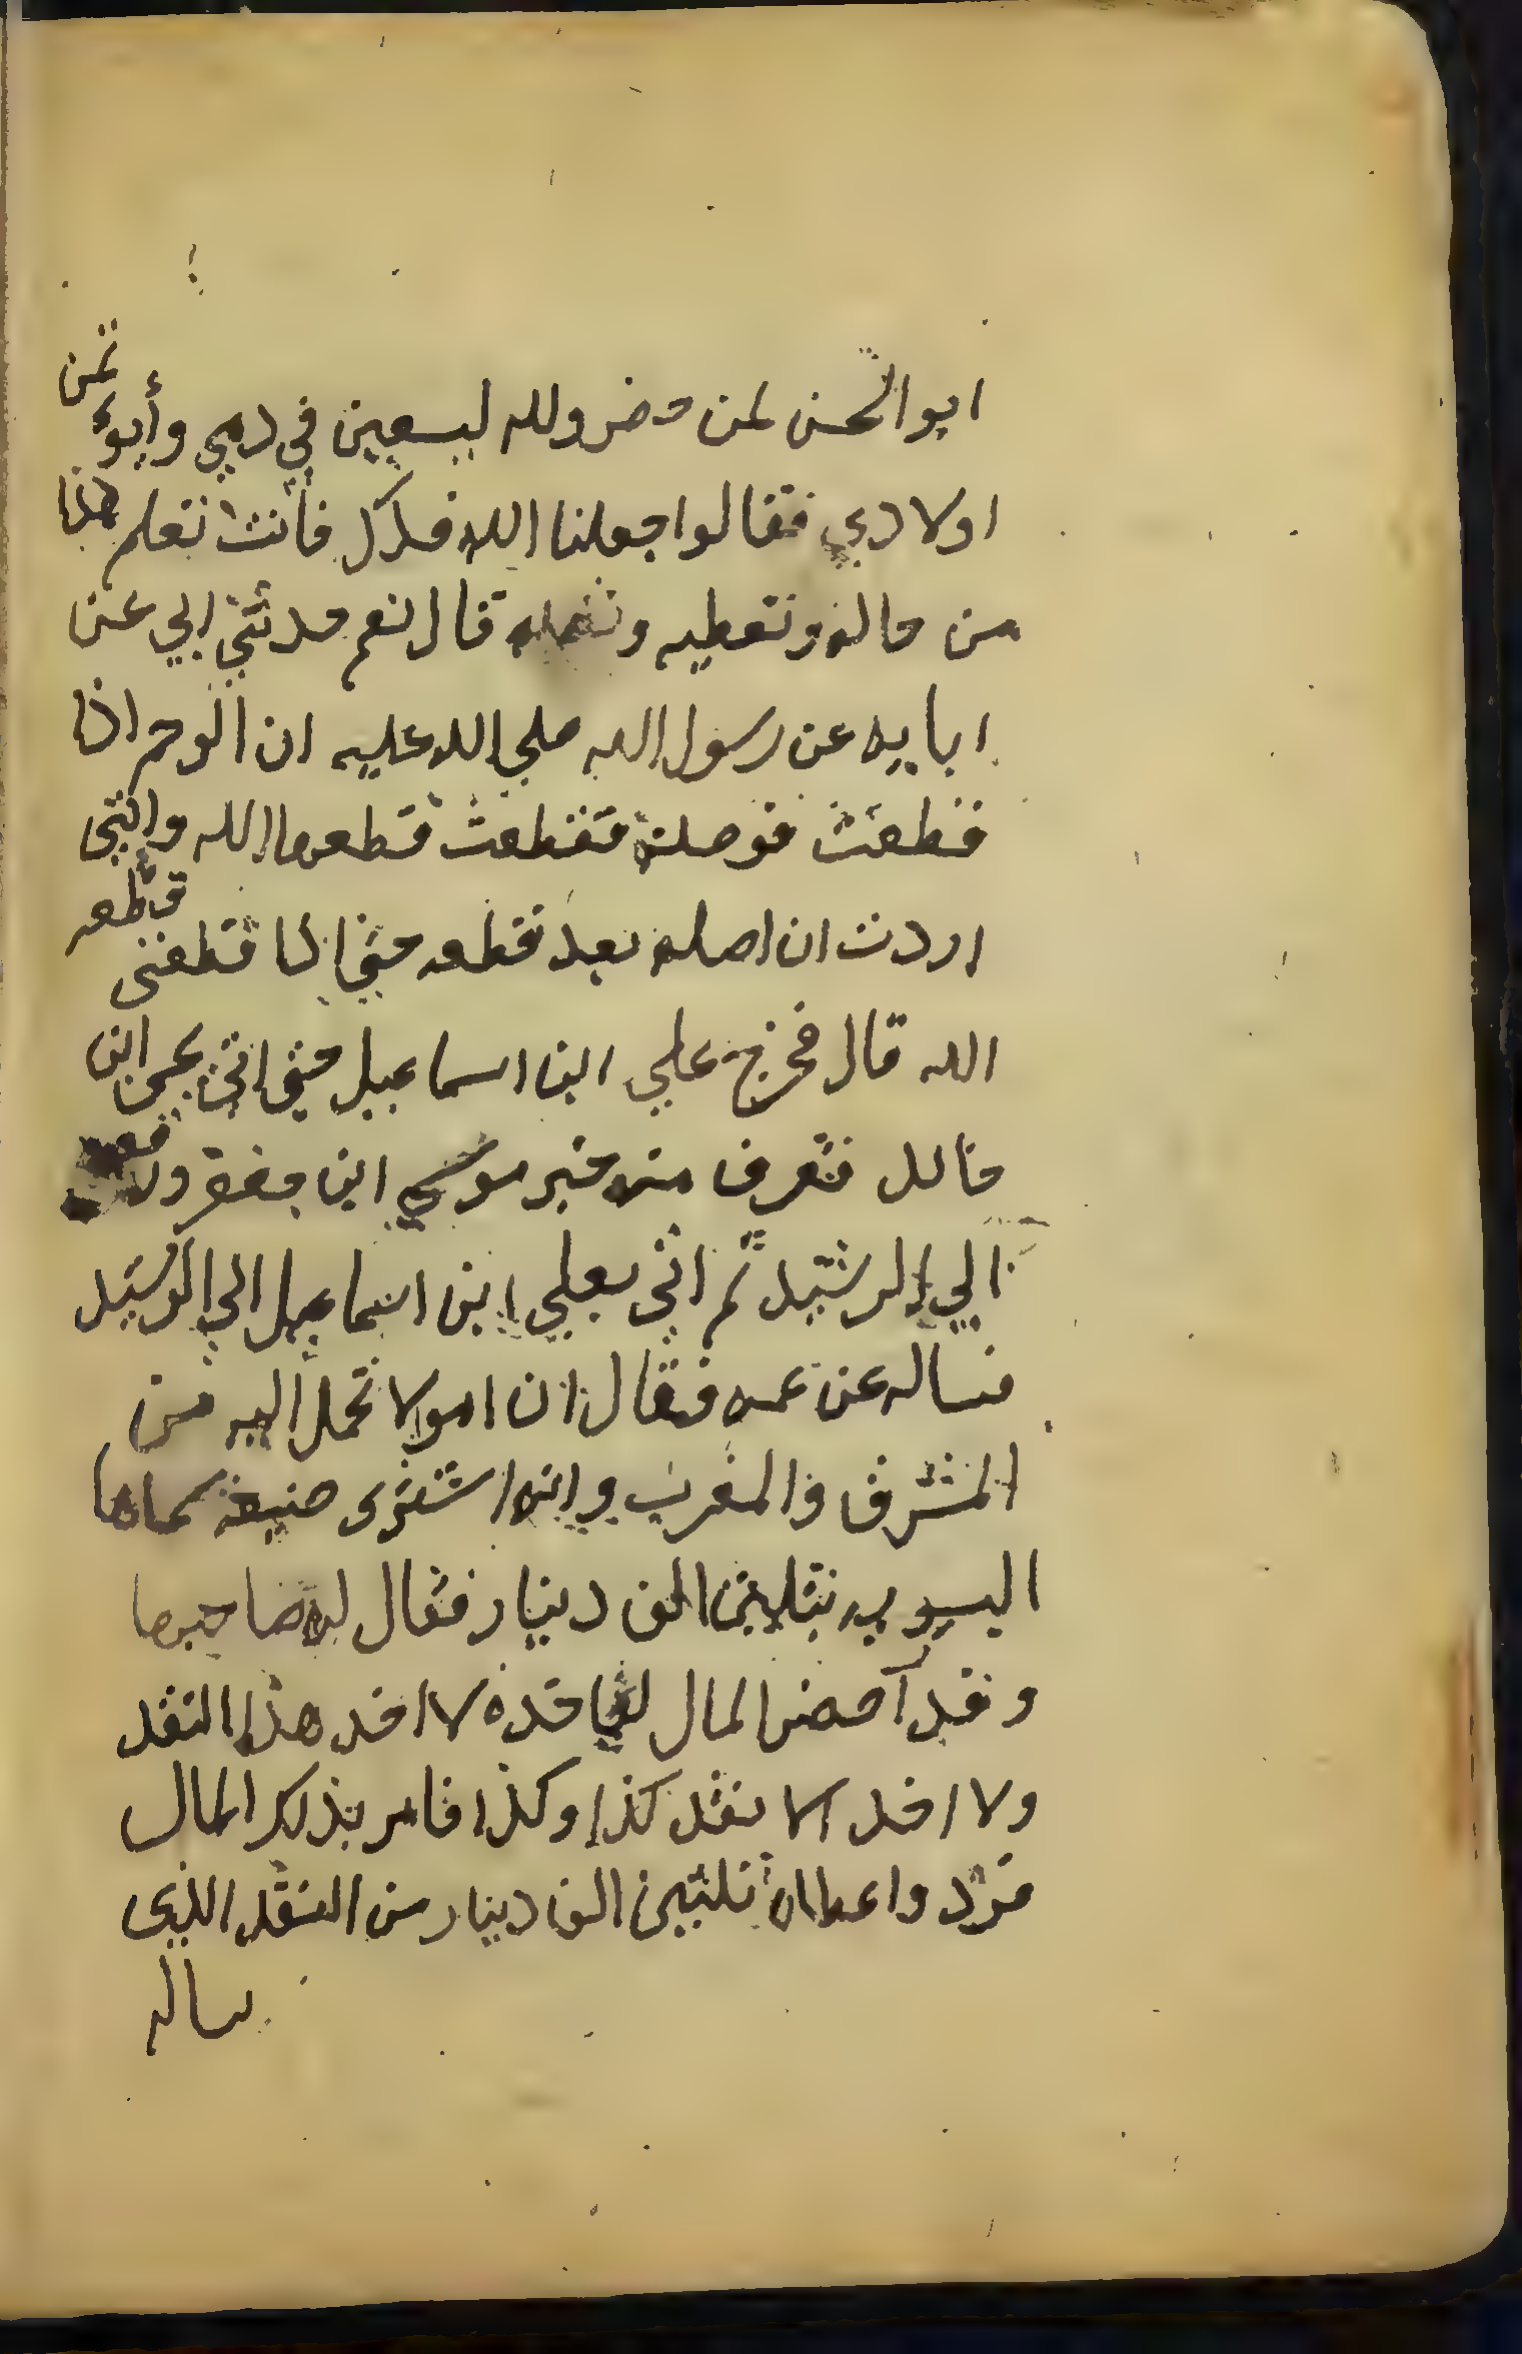 ابو الحسن لمن حضر والله ليسعين في دمي وأيوتمن
اولادي فقالوا جعلنا الله فداك فأنت تعلم هذا
من حاله وتعطيه وتصله قال نعم حدثني ابي عن
ابايه عن رسول الله صلي الله عليه ان الرحم اذا
قطعت فوصلت فقطعت قطعها الله وانني
اردت ان اصله بعد قطعه حتي اذا قطعني قطعه
الله قال فخرج علي ابن اسماعيل حتي اتى يحيى ابن
خالد فتعرف منه خبر موسي ابن جعفر
الي الرشيد ثم اتى بعلي ابن اسماعيل الي الرشيد
فساله عن عمه فقال ان اموالا تحمل اليه من
المشرق والمغرب وانه اشترى ضيعة سماها
اليسيريه بثلاثين الف دينار فقال له صاحبها
وقد احضر المال لا اخد هذا النقد
ولا اخد الا نقد كذا وكذا فامر بذلك المال
فرد واعطاه ثلثين الف دينار من النقد الذي
ساله